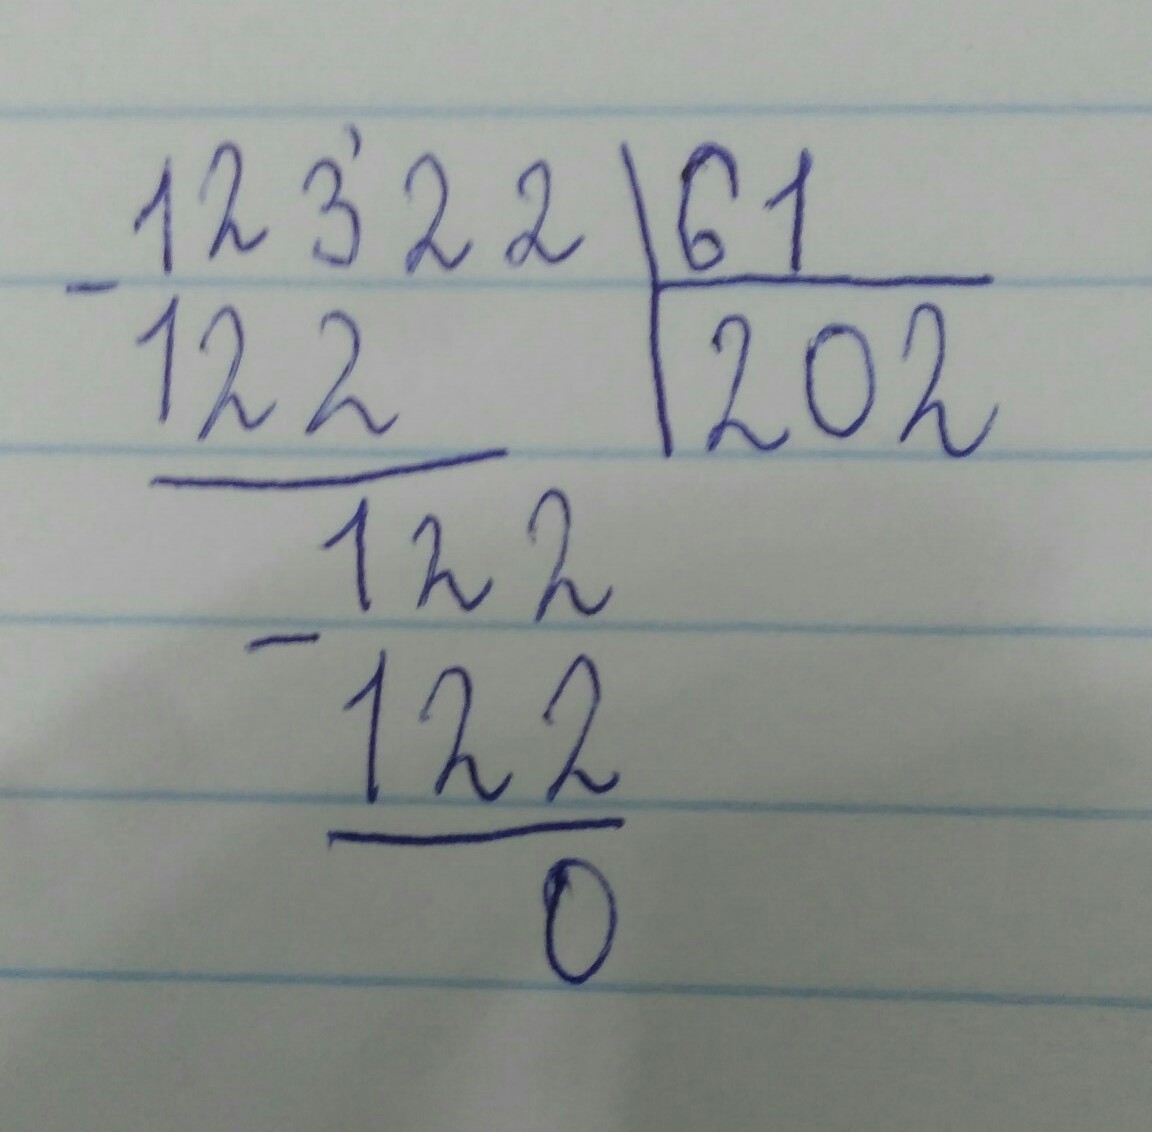 123'22 61
- 122 202
122
- 122
0